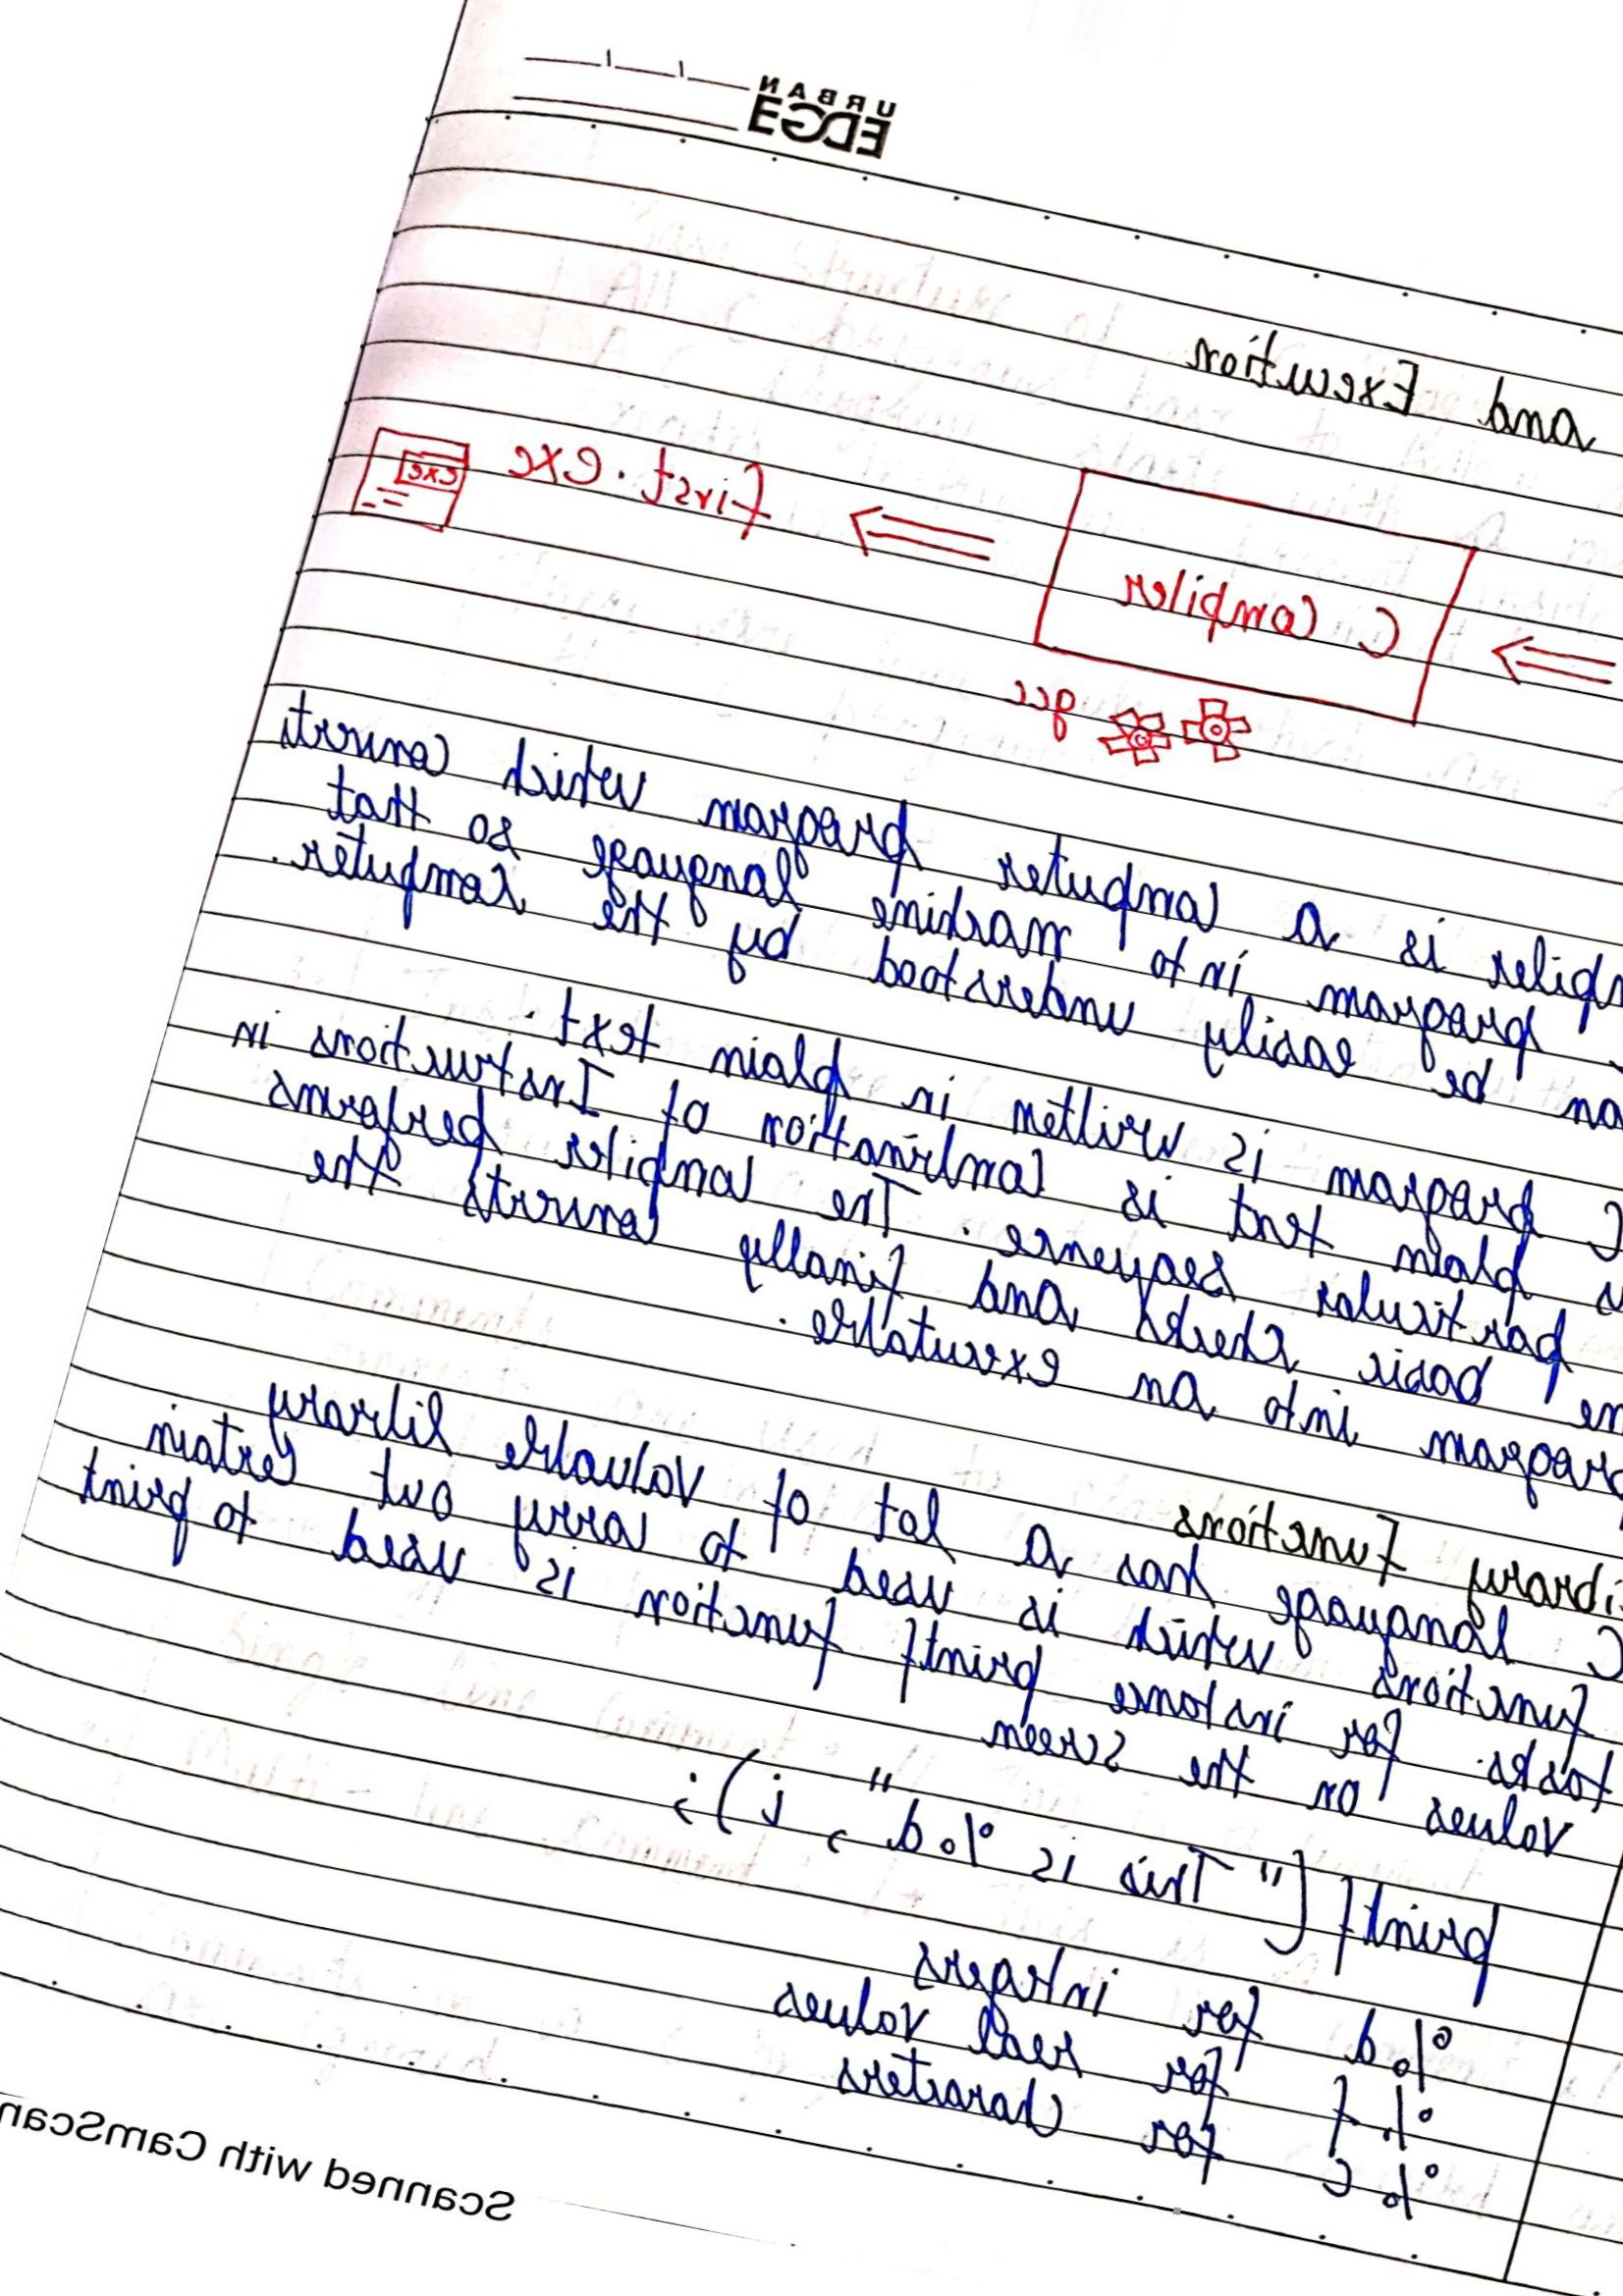 URBAN
EDGE
and Execution
C Compiler
first.exe
exe
gcc
is a computer program which converts
program into machine language so that
be easily understood by the computer.
C program is written in plain text.
plain text is combination of Instructions in
particular sequence. The compiler performs
basic checks and finally converts the
program into an executable.
Library Functions
C language has a lot of valuable library
functions which is used to carry out certain
tasks. for instance printf function is used to print
values on the screen
printf("This is %d", i);
%d for integers
%f for real values
%c for characters
Scanned with CamScan